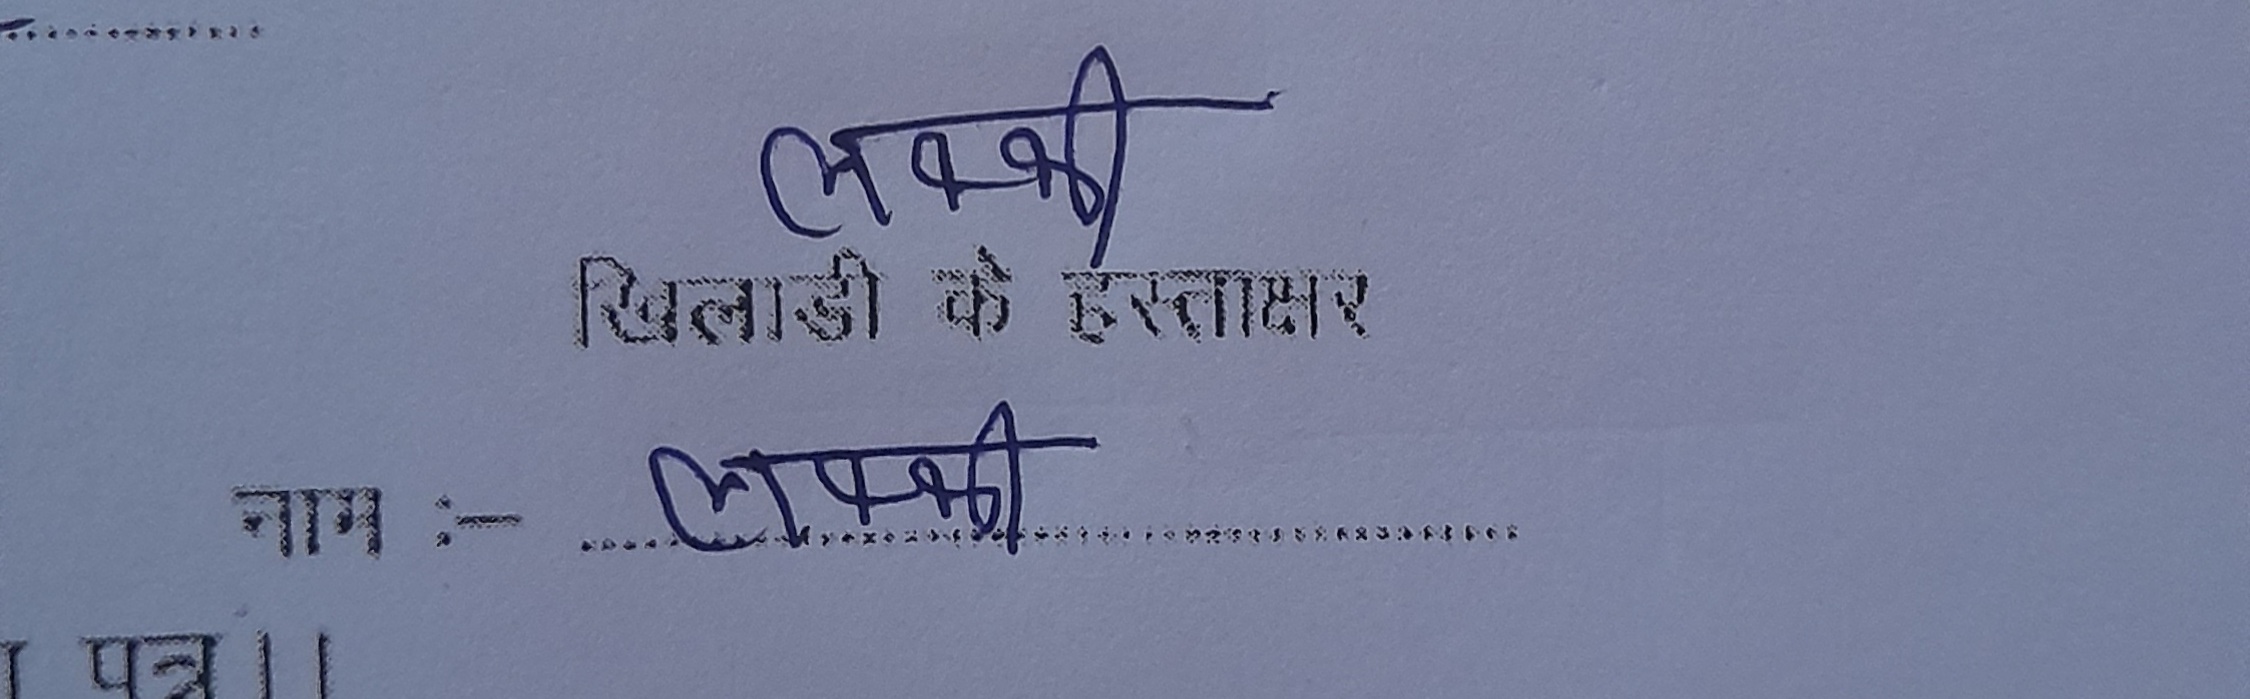 लक्की
खिलाडी के हस्ताक्षर
नाम :- लक्की
पत्र।।